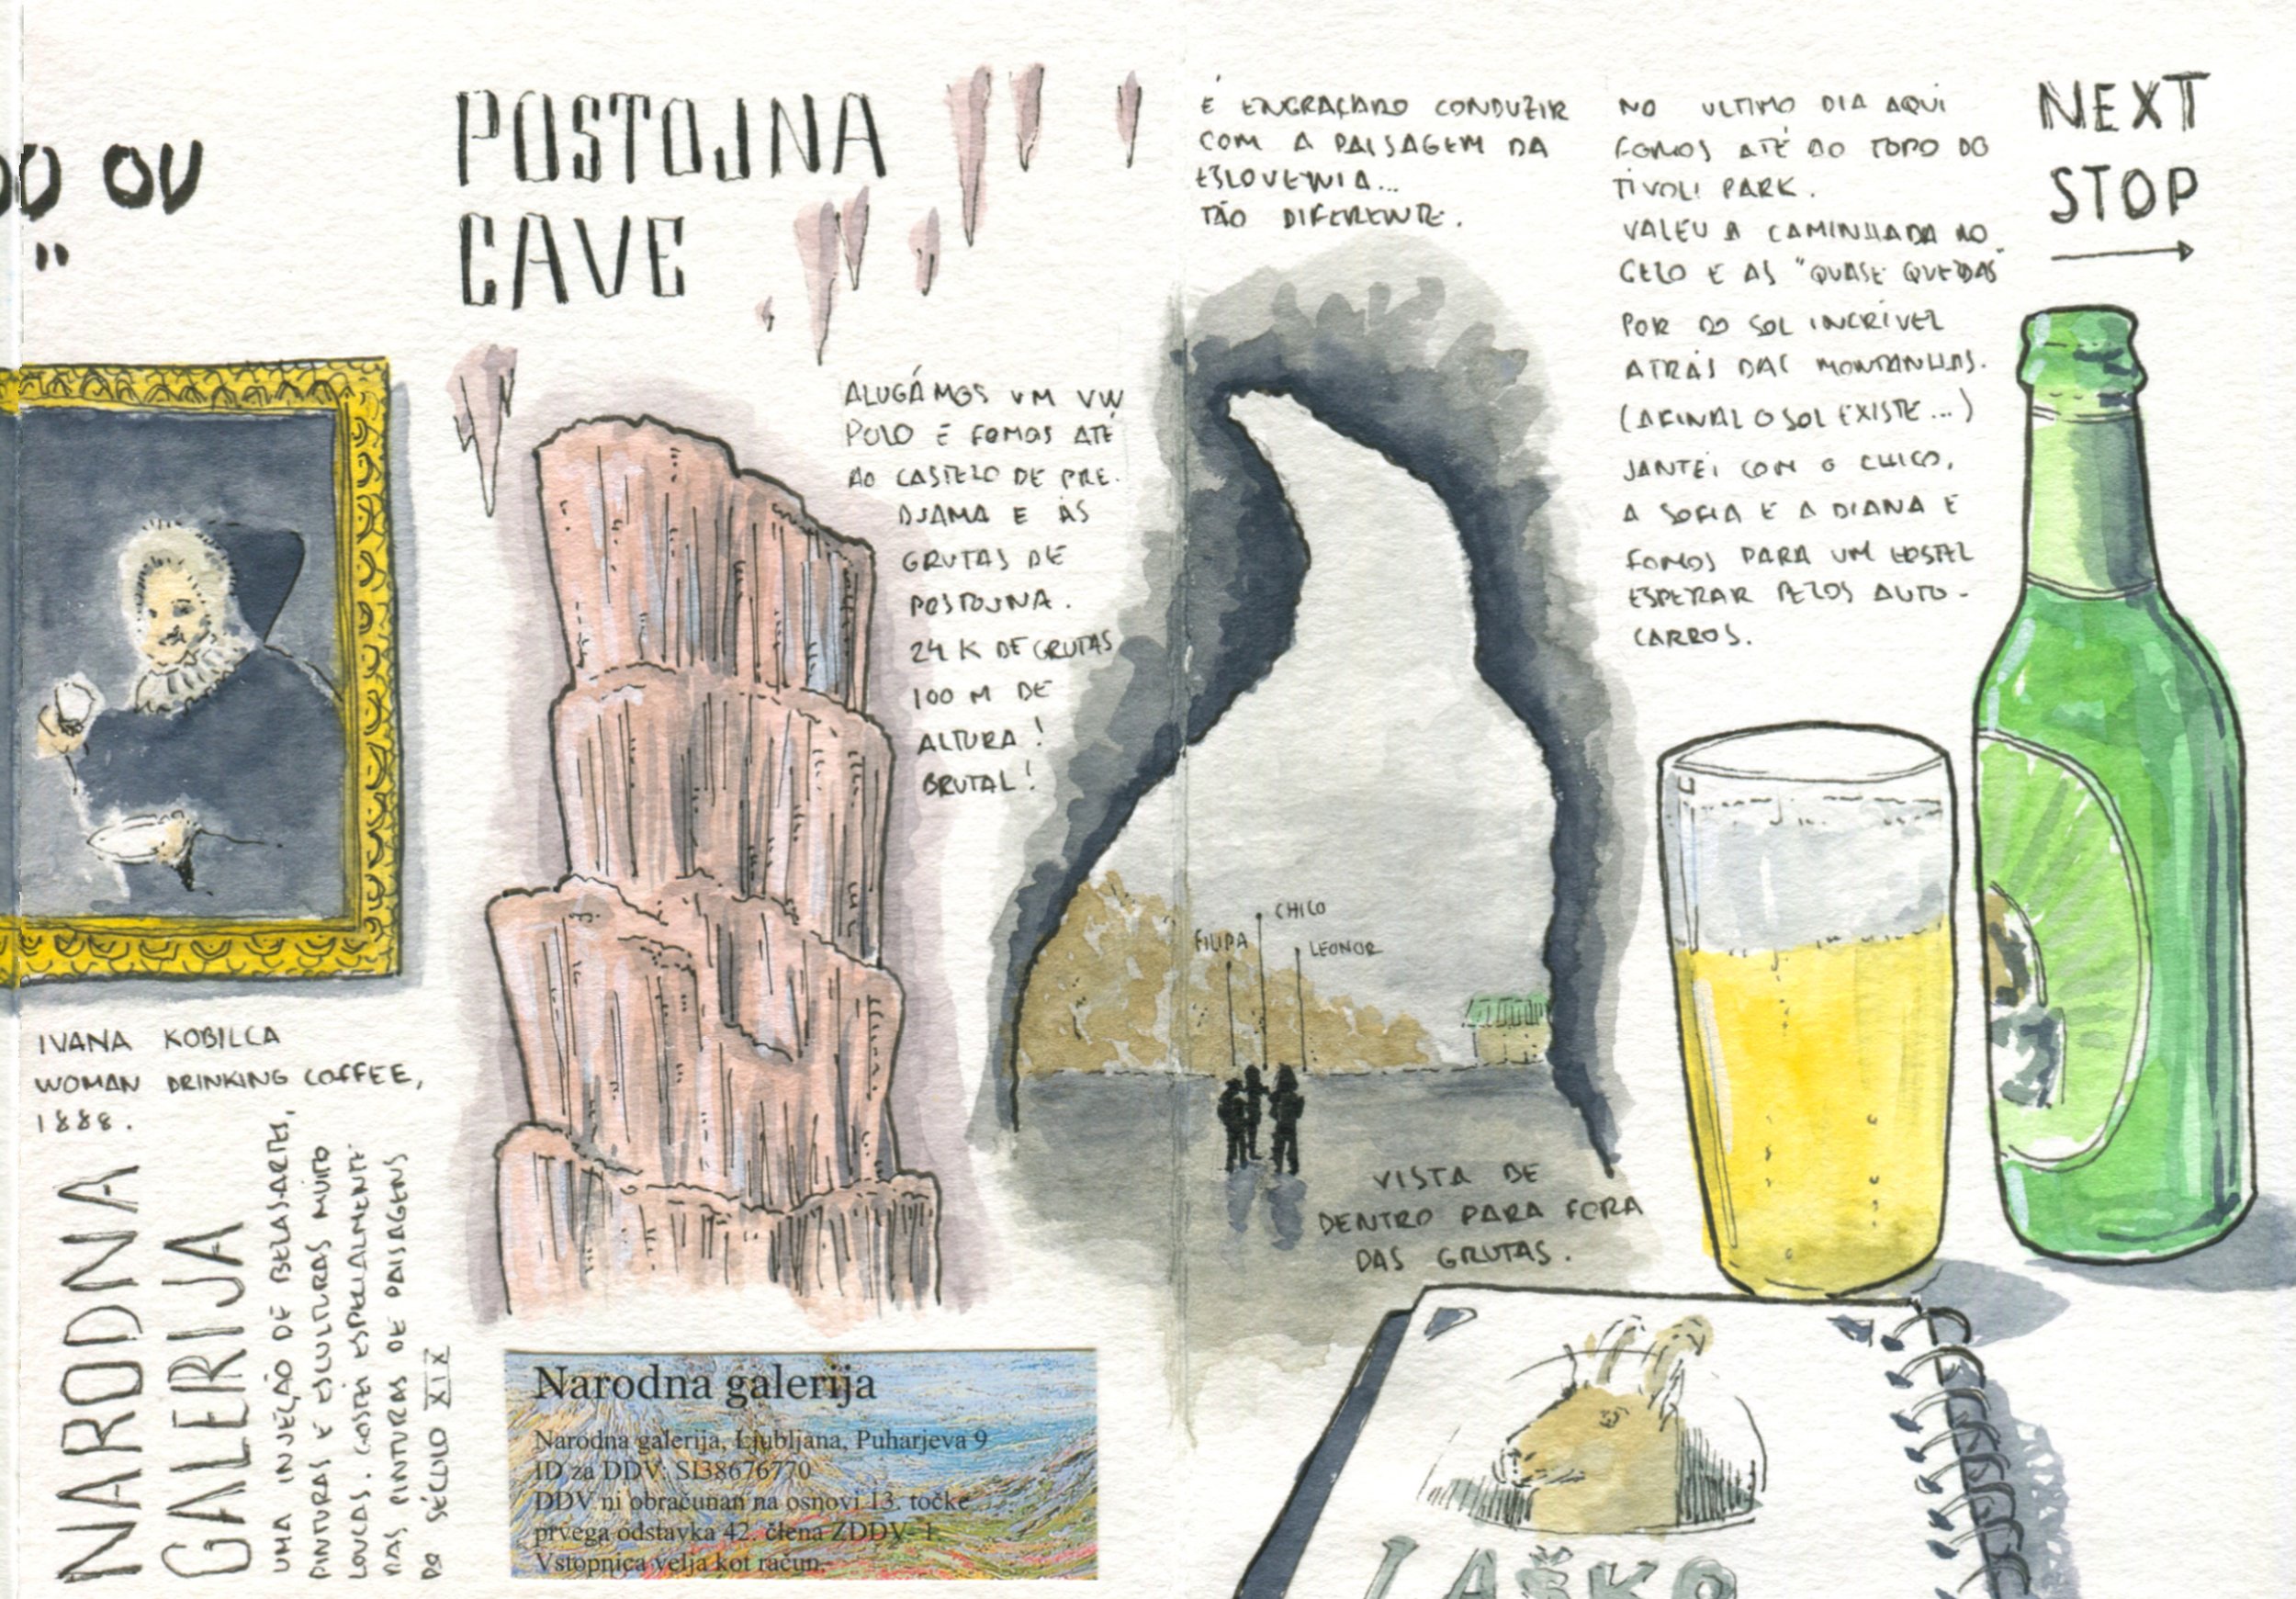 DO OU
"
IVANA KOBILCA
WOMAN DRINKING COFFEE,
1888.
NARODNA
GALERIJA
UMA INJEÇÃO DE BELAS-ARTES,
PINTURAS E ESCULTURAS MUITO
LOUCAS. GOSTEI ESPECIALMENTE
DAS PINTURAS DE PAISAGENS
DO SÉCULO XIX
POSTOJNA
CAVE
ALUGÁMOS UM VW
POLO E FOMOS ATÉ
AO CASTELO DE PRE-
DJAMA E ÀS
GRUTAS DE
POSTOJNA.
24 K DE GRUTAS
100 M DE
ALTURA!
BRUTAL!
Narodna galerija
Narodna galerija, Ljubljana, Puharjeva 9
ID za DDV: SI38676770
DDV ni obračunan na osnovi 13. točke
prvega odstavka 42. člena ZDDV-1.
Vstopnica velja kot račun.
É ENGRAÇADO CONDUZIR
COM A PAISAGEM DA
ESLOVENIA...
TÃO DIFERENTE.
CHICO
FILIPA
LEONOR
VISTA DE
DENTRO PARA FORA
DAS GRUTAS.
NO ULTIMO DIA AQUI
FOMOS ATÉ AO TOPO DO
TIVOLI PARK.
VALEU A CAMINHADA NO
GELO E AS "QUASE QUEDAS"
POR DO SOL INCRÍVEL
ATRÁS DAS MONTANHAS.
(AFINAL O SOL EXISTE...)
JANTEI COM O CHICO,
A SOFIA E A DIANA E
FOMOS PARA UM HOSTEL
ESPERAR PELOS AUTO-
CARROS.
NEXT
STOP
LAŠKO